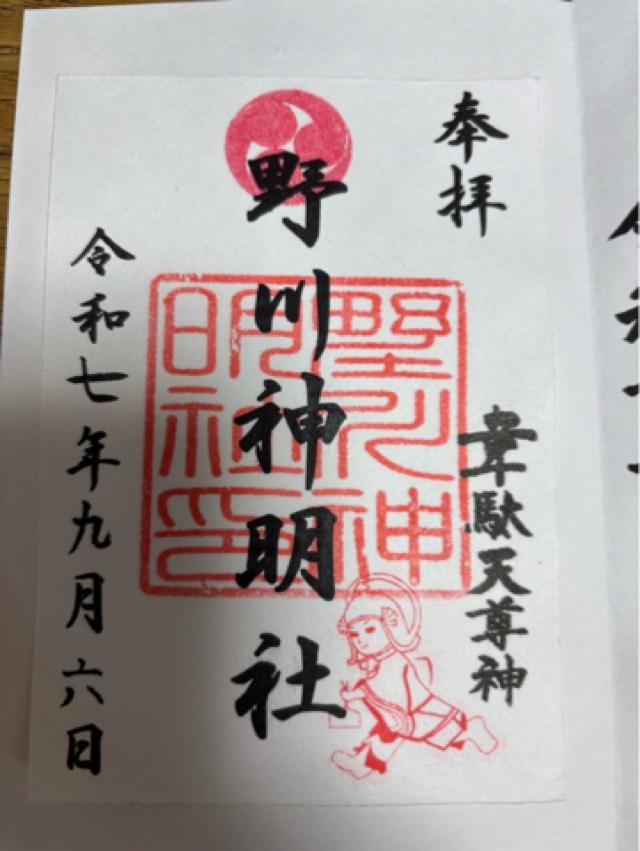 奉拝
韋駄天尊神
野川神明社
野川神明社印
令和七年九月六日